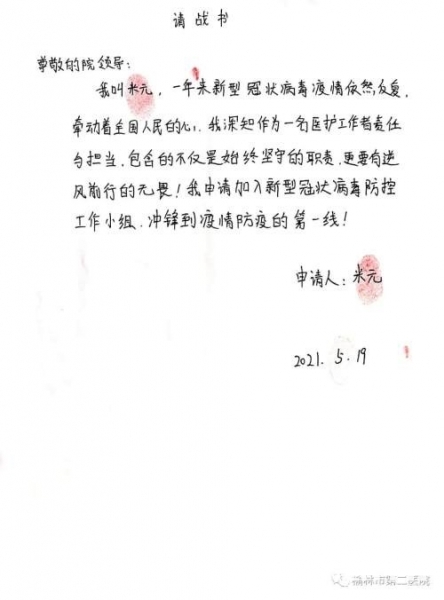 请战书
尊敬的院领导:
我叫米元,一年来新型冠状病毒疫情依然反复,
牵动着全国人民的心,我深知作为一名医护工作者责任
与担当,包含的不仅是始终坚守的职责,更要有逆
风前行的无畏!我申请加入新型冠状病毒防控
工作小组,冲锋到疫情防疫的第一线!
申请人:米元
2021. 5. 19
榆林市第二医院